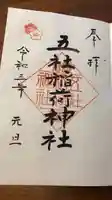 奉拝
五社稲荷神社
令和三年 元旦